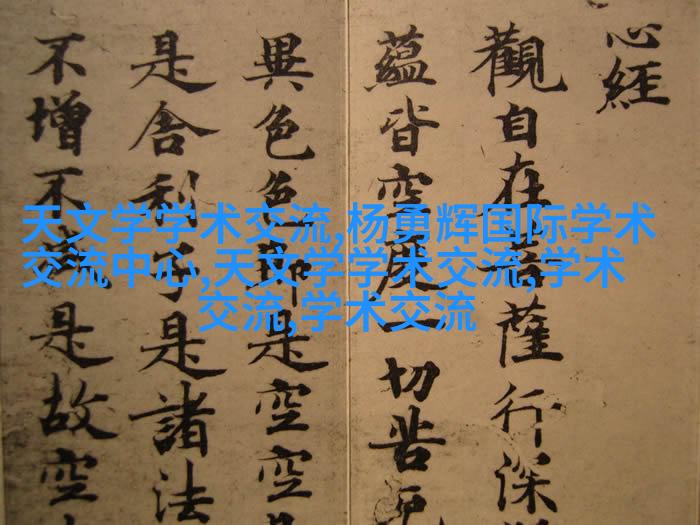 心經
觀自在菩薩行深
蘊皆空度一切苦厄
異色色即是空空
是舍利子是諸法
不增不減是故空
天文学学术交流,杨勇辉国际学术
交流中心,天文学学术交流,学术
交流,学术交流